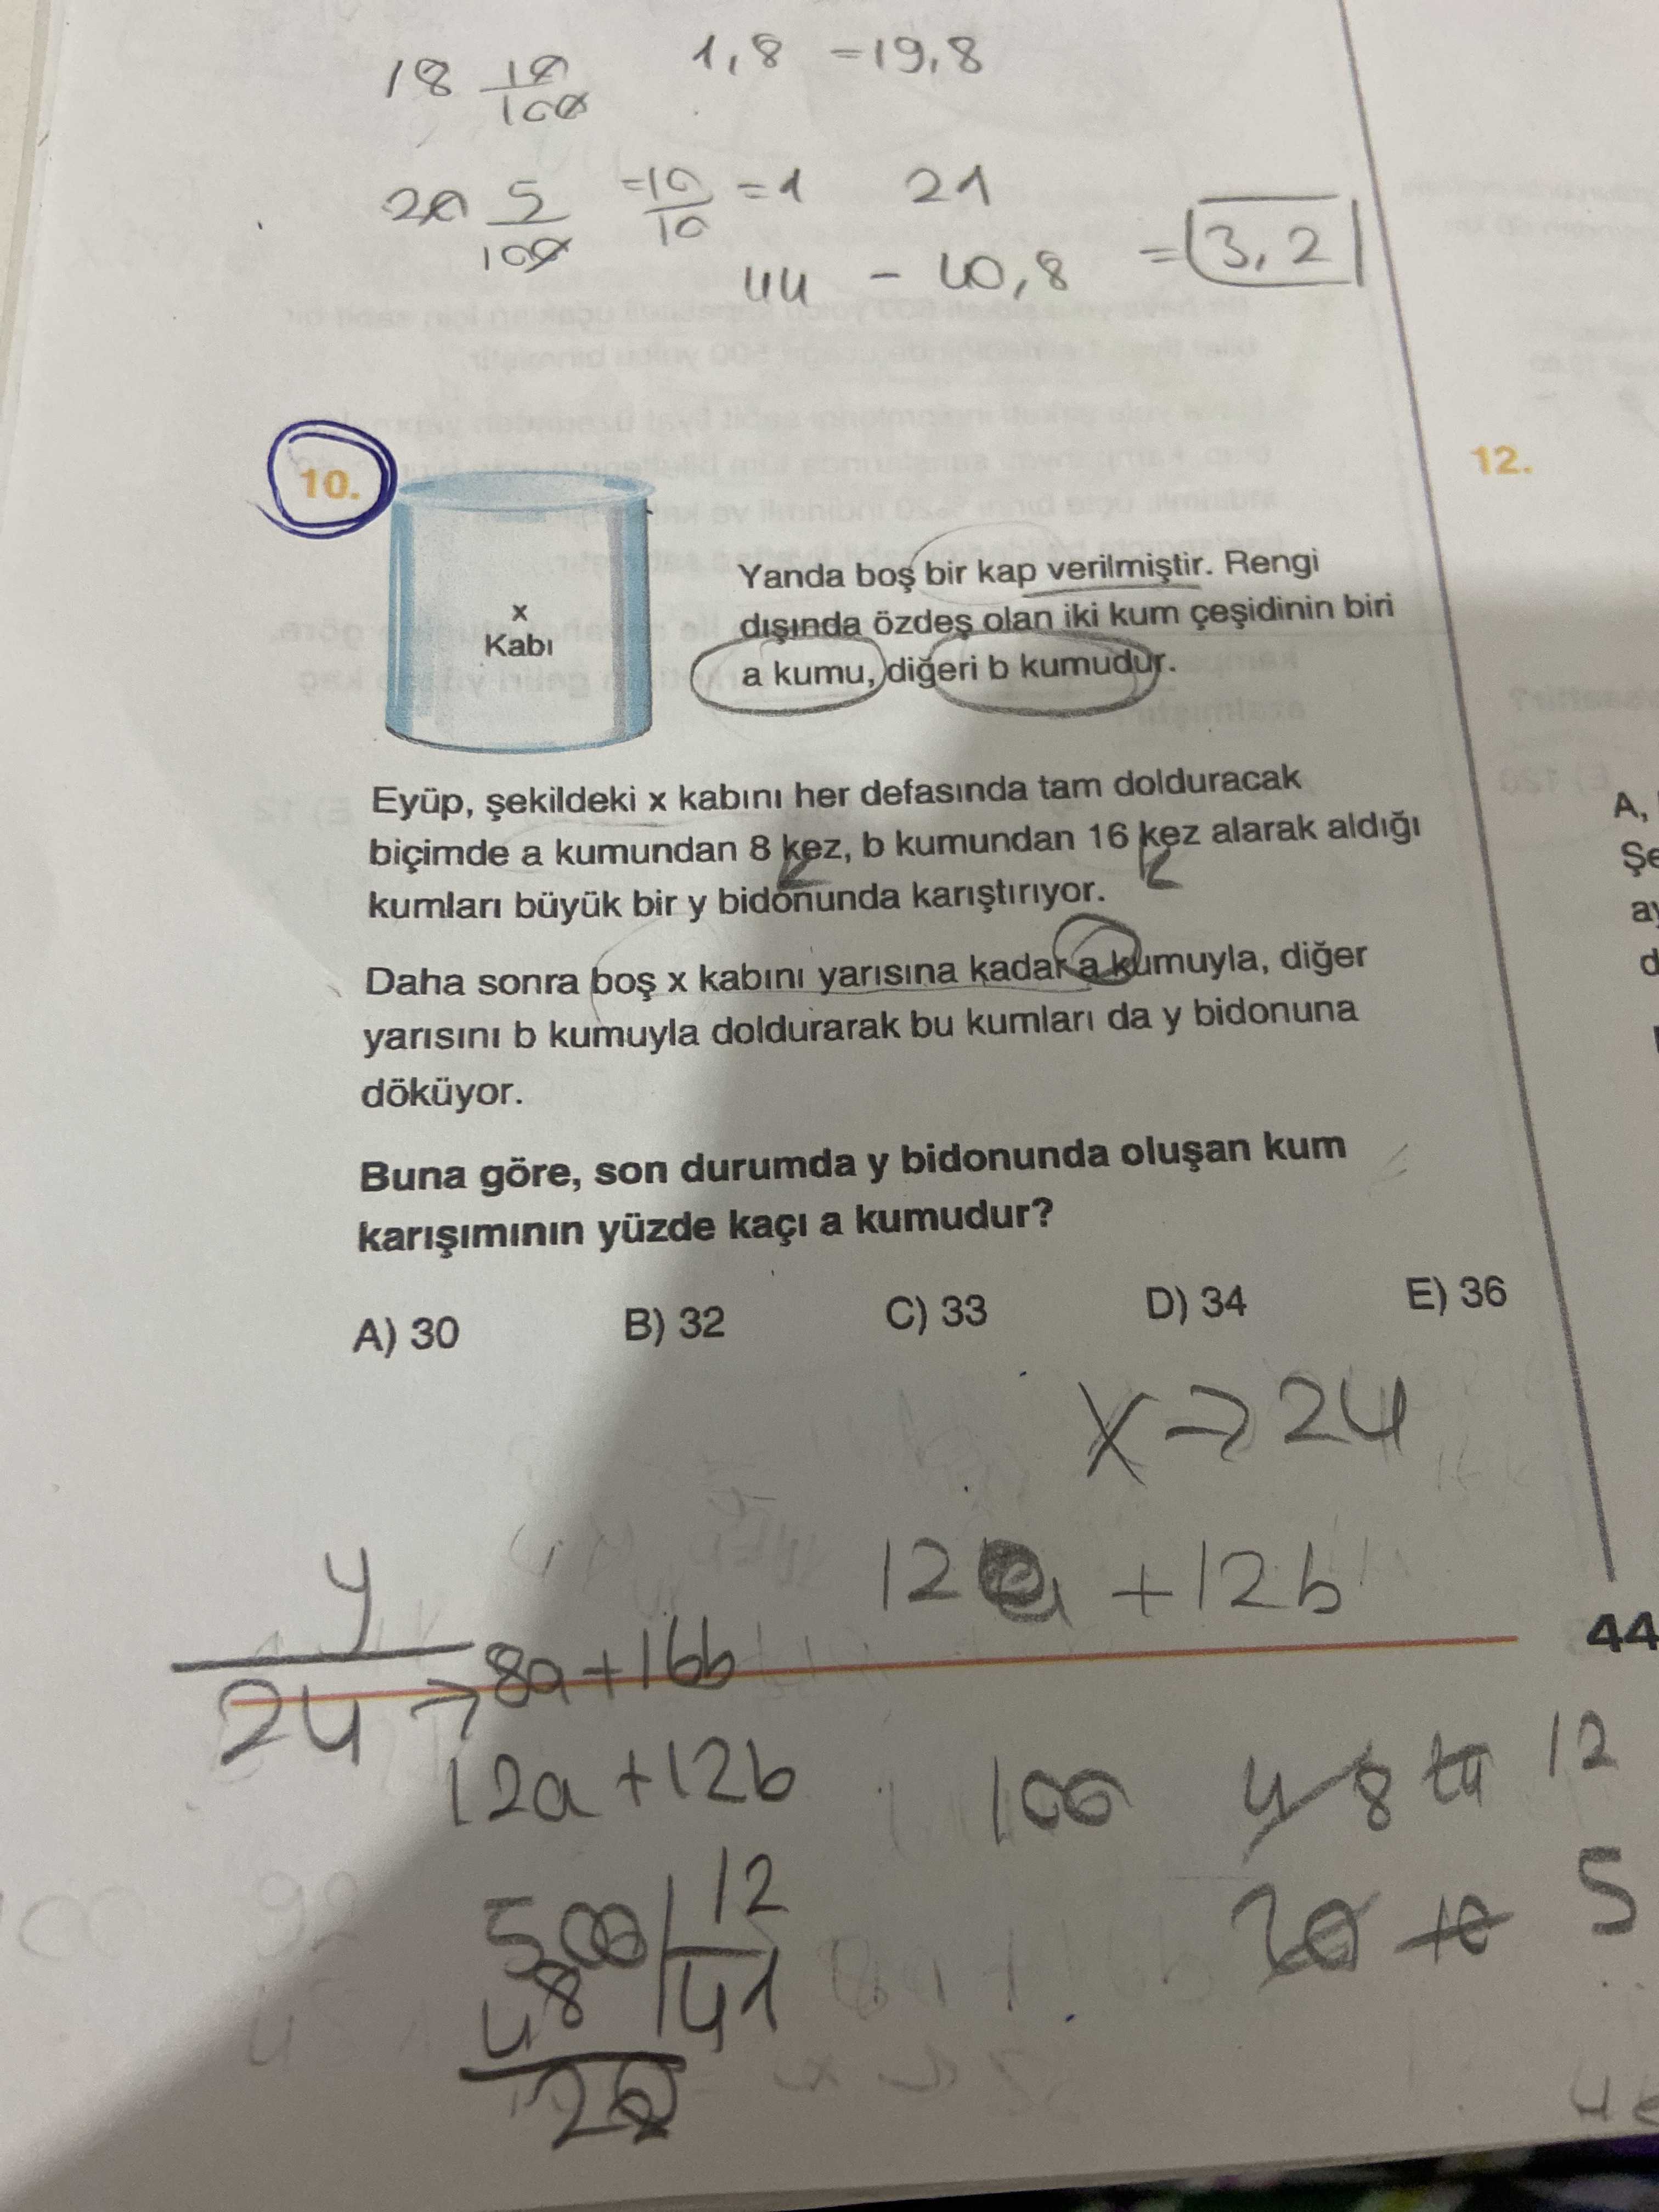 18 10/100 1,8 = 19,8
20 5/100 = 10/10 = 1 21
44 - 40,8 = 3,2
10.
x
Kabı
Yanda boş bir kap verilmiştir. Rengi
dışında özdeş olan iki kum çeşidinin biri
a kumu, diğeri b kumudur.
Eyüp, şekildeki x kabını her defasında tam dolduracak
biçimde a kumundan 8 kez, b kumundan 16 kez alarak aldığı
kumları büyük bir y bidonunda karıştırıyor.
Daha sonra boş x kabını yarısına kadar a kumuyla, diğer
yarısını b kumuyla doldurarak bu kumları da y bidonuna
döküyor.
Buna göre, son durumda y bidonunda oluşan kum
karışımının yüzde kaçı a kumudur?
A) 30 B) 32 C) 33 D) 34 E) 36
x → 24
12a + 12b
y
24 → 8a + 16b
12a + 12b
100 48 12
20 10 5
500 12
48 41
20
12.
A,
Şe
ay
d
44